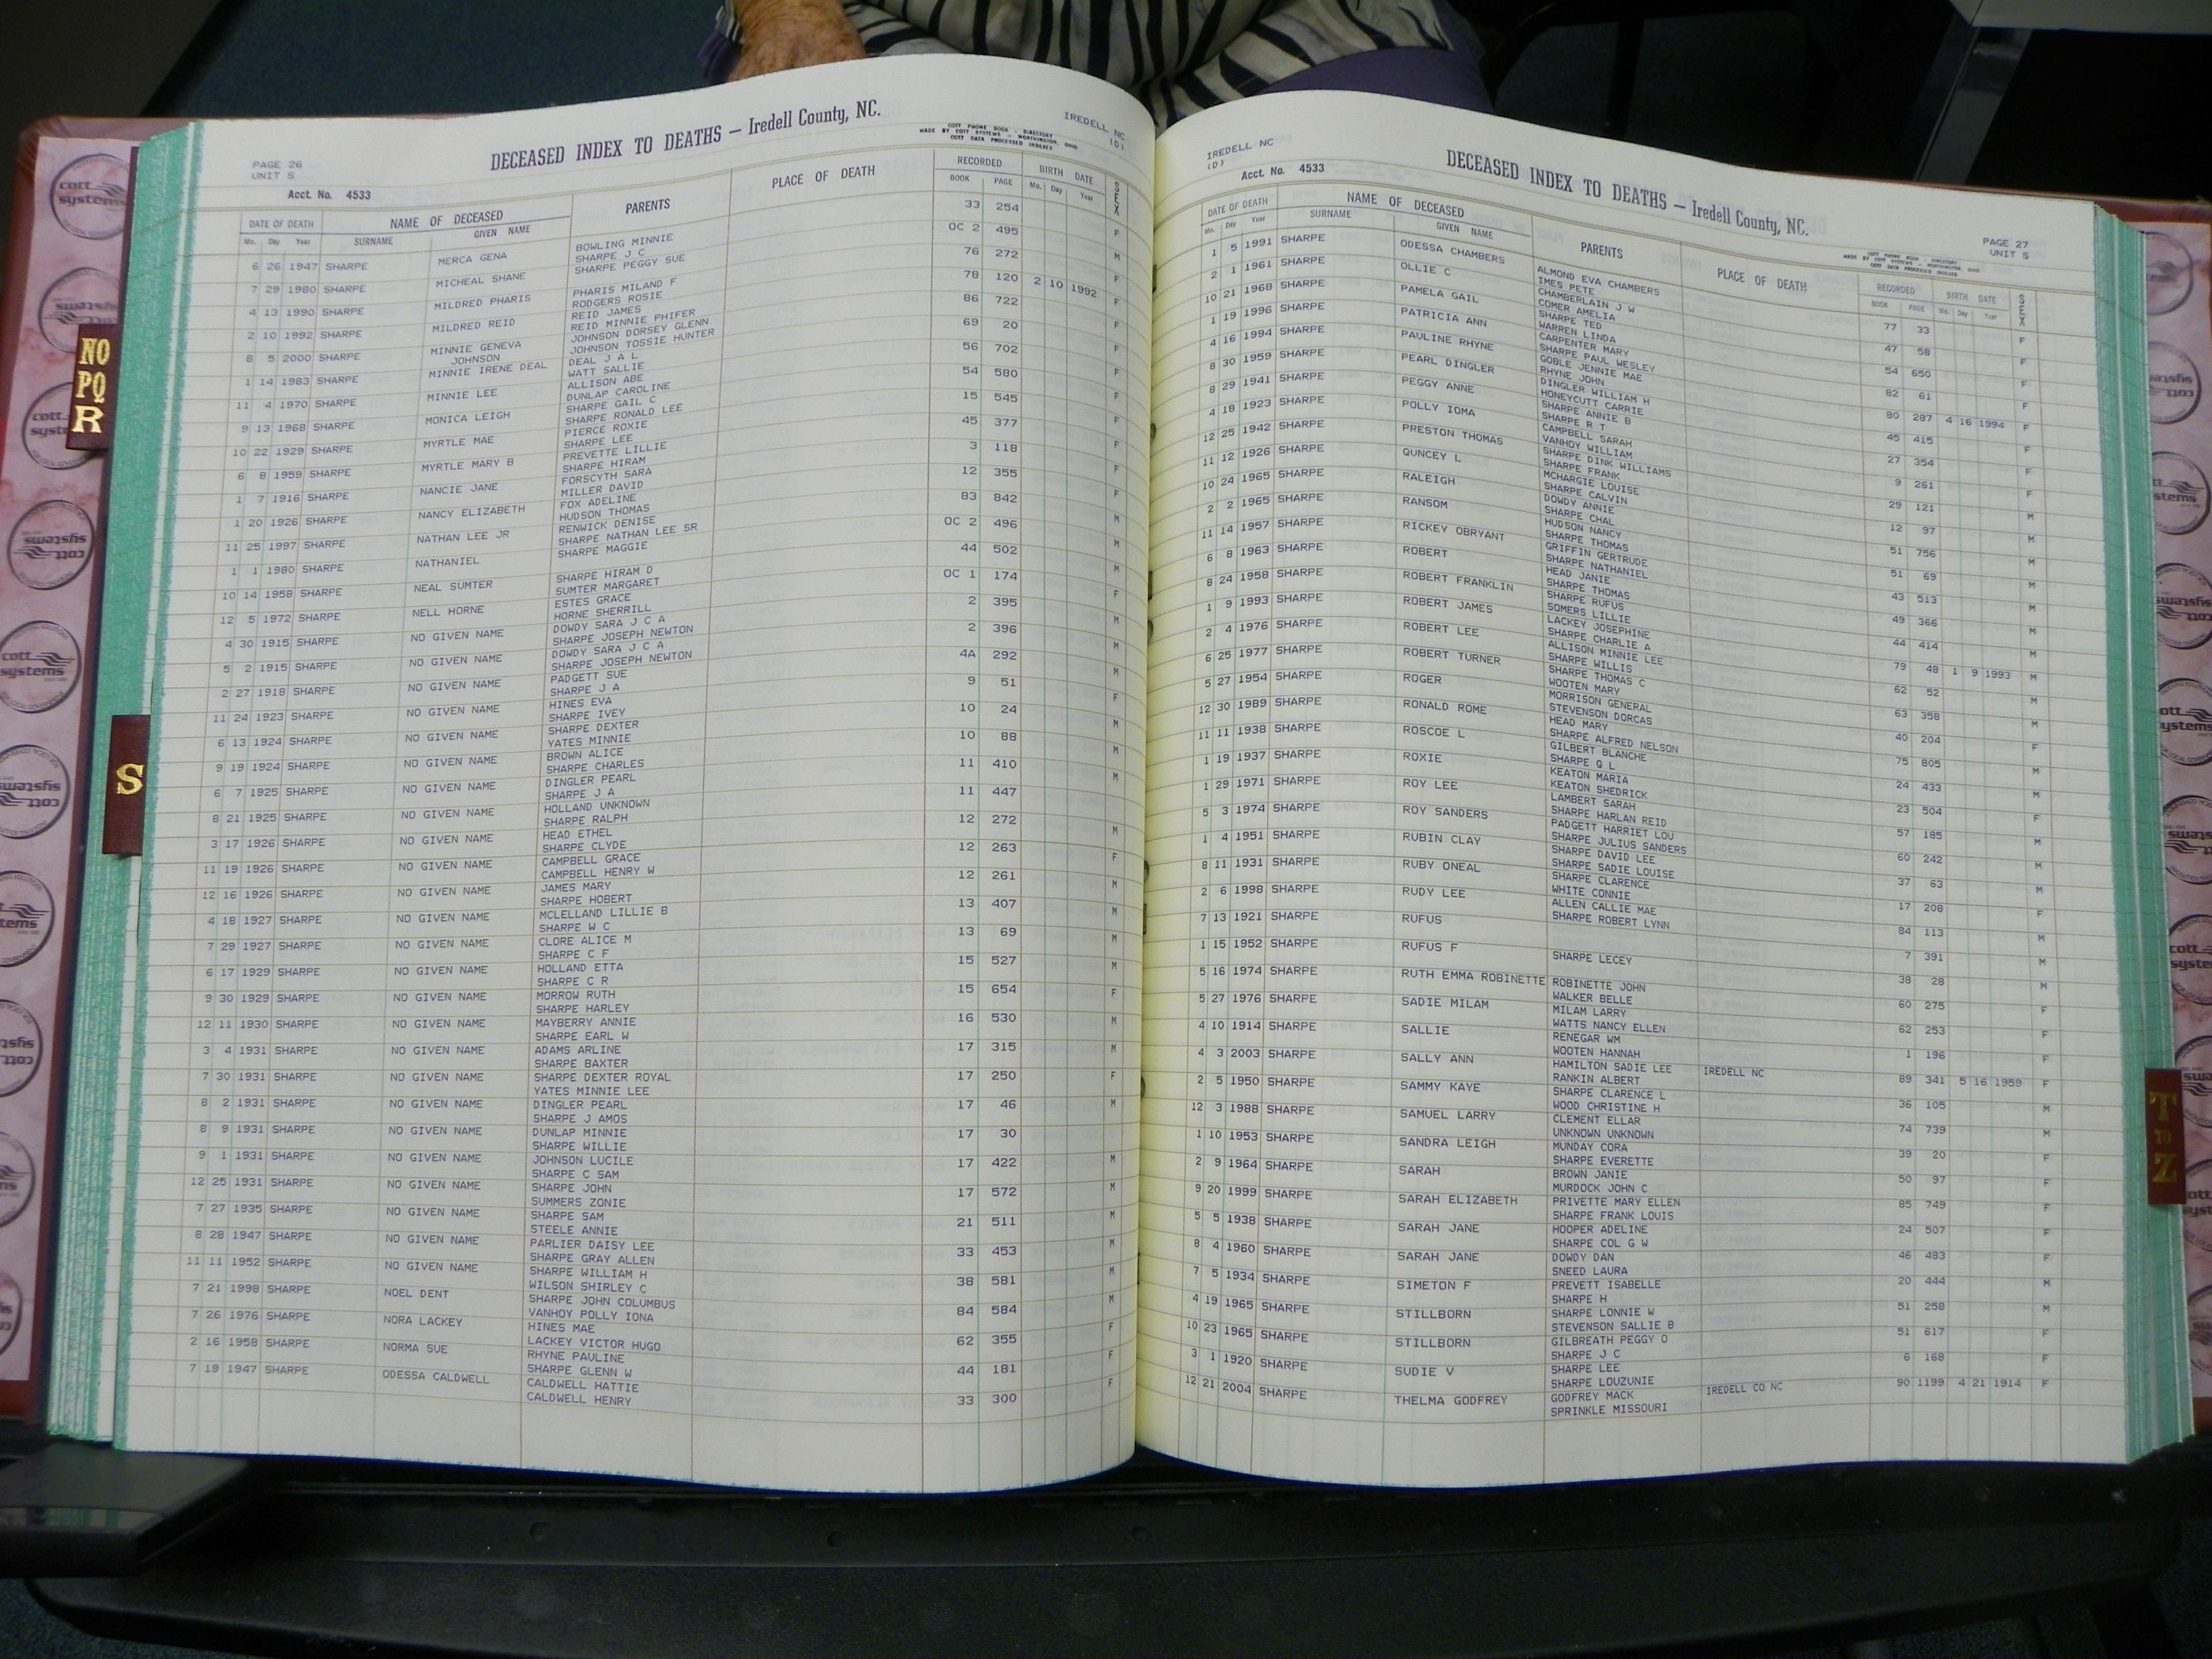 PAGE 26
UNIT S
Acct. No. 4533
DECEASED INDEX TO DEATHS — Iredell County, NC.
COTT PHONE BOOK - DIRECTORY
MADE BY COTT SYSTEMS - WORTHINGTON, OHIO
COTT DATA PROCESSED INDEXES
IREDELL NC
(D)
DATE OF DEATH NAME OF DECEASED PARENTS PLACE OF DEATH RECORDED BIRTH DATE SEX
Mo. Day Year SURNAME GIVEN NAME BOOK PAGE Mo. Day Year
6 26 1947 SHARPE MERCA GENA BOWLING MINNIE 33 254 F
SHARPE J C
7 29 1980 SHARPE MICHEAL SHANE SHARPE PEGGY SUE OC 2 495 M
4 13 1990 SHARPE MILDRED PHARIS PHARIS MILAND F 76 272 F
RODGERS ROSIE
2 10 1992 SHARPE MILDRED REID REID JAMES 78 120 2 10 1992 F
REID MINNIE PHIFER
8 5 2000 SHARPE MINNIE GENEVA JOHNSON JOHNSON DORSEY GLENN 86 722 F
JOHNSON TOSSIE HUNTER
1 14 1983 SHARPE MINNIE IRENE DEAL DEAL J A L 69 20 F
WATT SALLIE
11 4 1970 SHARPE MINNIE LEE ALLISON ABE 56 702 F
DUNLAP CAROLINE
9 13 1968 SHARPE MONICA LEIGH SHARPE GAIL C 54 580 F
SHARPE RONALD LEE
10 22 1929 SHARPE MYRTLE MAE PIERCE ROXIE 15 545
SHARPE LEE
6 8 1959 SHARPE MYRTLE MARY B PREVETTE LILLIE 45 377 F
SHARPE HIRAM
1 7 1916 SHARPE NANCIE JANE FORSYTH SARA 3 118
MILLER DAVID
1 20 1926 SHARPE NANCY ELIZABETH FOX ADELINE 12 355
HUDSON THOMAS
11 25 1997 SHARPE NATHAN LEE JR RENWICK DENISE 83 842 M
SHARPE NATHAN LEE SR
1 1 1980 SHARPE NATHANIEL SHARPE MAGGIE OC 2 496 M
10 14 1958 SHARPE NEAL SUMTER SHARPE HIRAM D 44 502 M
SUMTER MARGARET
12 5 1972 SHARPE NELL HORNE ESTES GRACE OC 1 174 F
HORNE SHERRILL
4 30 1915 SHARPE NO GIVEN NAME DOWDY SARA J C A 2 395
SHARPE JOSEPH NEWTON
5 2 1915 SHARPE NO GIVEN NAME DOWDY SARA J C A 2 396
SHARPE JOSEPH NEWTON
2 27 1918 SHARPE NO GIVEN NAME PADGETT SUE 4A 292
SHARPE J A
11 24 1923 SHARPE NO GIVEN NAME HINES EVA 9 51
SHARPE IVEY
6 13 1924 SHARPE NO GIVEN NAME SHARPE DEXTER 10 24
YATES MINNIE
9 19 1924 SHARPE NO GIVEN NAME BROWN ALICE 10 88
SHARPE CHARLES
6 7 1925 SHARPE NO GIVEN NAME DINGLER PEARL 11 410
SHARPE J A
8 21 1925 SHARPE NO GIVEN NAME HOLLAND UNKNOWN 11 447
SHARPE RALPH
3 17 1926 SHARPE NO GIVEN NAME HEAD ETHEL 12 272
SHARPE CLYDE
11 19 1926 SHARPE NO GIVEN NAME CAMPBELL GRACE 12 263
CAMPBELL HENRY W
12 16 1926 SHARPE NO GIVEN NAME JAMES MARY 12 261
SHARPE HOBERT
4 18 1927 SHARPE NO GIVEN NAME MCLELLAND LILLIE B 13 407
SHARPE W C
7 29 1927 SHARPE NO GIVEN NAME CLORE ALICE M 13 69
SHARPE C F
6 17 1929 SHARPE NO GIVEN NAME HOLLAND ETTA 15 527
SHARPE C R
9 30 1929 SHARPE NO GIVEN NAME MORROW RUTH 15 654
SHARPE HARLEY
12 11 1930 SHARPE NO GIVEN NAME MAYBERRY ANNIE 16 530
SHARPE EARL W
3 4 1931 SHARPE NO GIVEN NAME ADAMS ARLINE 17 315
SHARPE BAXTER
7 30 1931 SHARPE NO GIVEN NAME SHARPE DEXTER ROYAL 17 250
YATES MINNIE LEE
8 2 1931 SHARPE NO GIVEN NAME DINGLER PEARL 17 46
SHARPE J AMOS
8 9 1931 SHARPE NO GIVEN NAME DUNLAP MINNIE 17 30
SHARPE WILLIE
9 1 1931 SHARPE NO GIVEN NAME JOHNSON LUCILE 17 422
SHARPE C SAM
12 25 1931 SHARPE NO GIVEN NAME SHARPE JOHN 17 572
SUMMERS ZONIE
7 27 1935 SHARPE NO GIVEN NAME SHARPE SAM 21 511
STEELE ANNIE
8 28 1947 SHARPE NO GIVEN NAME PARLIER DAISY LEE 33 453
SHARPE GRAY ALLEN
11 11 1952 SHARPE NO GIVEN NAME SHARPE WILLIAM H 38 581
WILSON SHIRLEY C
7 21 1998 SHARPE NOEL DENT SHARPE JOHN COLUMBUS 84 584 M
VANHOY POLLY IONA
7 26 1976 SHARPE NORA LACKEY HINES MAE 62 355 F
LACKEY VICTOR HUGO
2 16 1958 SHARPE NORMA SUE RHYNE PAULINE 44 181 F
SHARPE GLENN W
7 19 1947 SHARPE ODESSA CALDWELL CALDWELL HATTIE 33 300 F
CALDWELL HENRY
IREDELL NC
(D)
Acct. No. 4533
DECEASED INDEX TO DEATHS — Iredell County, NC.
PAGE 27
UNIT S
DATE OF DEATH NAME OF DECEASED PARENTS PLACE OF DEATH RECORDED BIRTH DATE SEX
Mo. Day Year SURNAME GIVEN NAME BOOK PAGE Mo. Day Year
1 5 1991 SHARPE ODESSA CHAMBERS ALMOND EVA CHAMBERS 77 33 F
IMES PETE
2 1 1961 SHARPE OLLIE C CHAMBERLAIN J W 47 58 F
COMER AMELIA
10 21 1968 SHARPE PAMELA GAIL SHARPE TED 54 650 F
WARREN LINDA
1 19 1996 SHARPE PATRICIA ANN CARPENTER MARY 82 61 F
SHARPE PAUL WESLEY
4 16 1994 SHARPE PAULINE RHYNE GOBLE JENNIE MAE 80 287 4 16 1994 F
RHYNE JOHN
8 30 1959 SHARPE PEARL DINGLER DINGLER WILLIAM H 45 415 F
HONEYCUTT CARRIE
8 29 1941 SHARPE PEGGY ANNE SHARPE ANNIE B 27 354 F
SHARPE R T
4 18 1923 SHARPE POLLY IOMA CAMPBELL SARAH 9 261 F
VANHOY WILLIAM
12 25 1942 SHARPE PRESTON THOMAS SHARPE DINK WILLIAMS 29 121 M
SHARPE FRANK
11 12 1926 SHARPE QUNCEY L MCHARGIE LOUISE 12 97 M
SHARPE CALVIN
10 24 1965 SHARPE RALEIGH DOWDY ANNIE 51 756 M
SHARPE CHAL
2 2 1965 SHARPE RANSOM HUDSON NANCY 51 69 M
SHARPE THOMAS
11 14 1957 SHARPE RICKEY OBRYANT GRIFFIN GERTRUDE 43 513 M
SHARPE NATHANIEL
6 8 1963 SHARPE ROBERT HEAD JANIE 49 366 M
SHARPE THOMAS
8 24 1958 SHARPE ROBERT FRANKLIN SHARPE RUFUS 44 414 M
SOMERS LILLIE
1 9 1993 SHARPE ROBERT JAMES LACKEY JOSEPHINE 79 48 1 9 1993 M
SHARPE CHARLIE A
2 4 1976 SHARPE ROBERT LEE ALLISON MINNIE LEE 62 52 M
SHARPE WILLIS
6 25 1977 SHARPE ROBERT TURNER SHARPE THOMAS C 63 358 M
WOOTEN MARY
5 27 1954 SHARPE ROGER MORRISON GENERAL 40 204 F
STEVENSON DORCAS
12 30 1989 SHARPE RONALD ROME HEAD MARY 75 805 M
SHARPE ALFRED NELSON
11 11 1938 SHARPE ROSCOE L GILBERT BLANCHE 24 433 M
SHARPE Q L
1 19 1937 SHARPE ROXIE KEATON MARIA 23 504 F
KEATON SHEDRICK
1 29 1971 SHARPE ROY LEE LAMBERT SARAH 57 185 M
SHARPE HARLAN REID
5 3 1974 SHARPE ROY SANDERS PADGETT HARRIET LOU 60 242 M
SHARPE JULIUS SANDERS
1 4 1951 SHARPE RUBIN CLAY SHARPE DAVID LEE 37 63 M
SHARPE SADIE LOUISE
8 11 1931 SHARPE RUBY ONEAL SHARPE CLARENCE 17 208 F
WHITE CONNIE
2 6 1998 SHARPE RUDY LEE ALLEN CALLIE MAE 84 113 M
SHARPE ROBERT LYNN
7 13 1921 SHARPE RUFUS 7 391 M
1 15 1952 SHARPE RUFUS F SHARPE LECEY 38 28 M
5 16 1974 SHARPE RUTH EMMA ROBINETTE ROBINETTE JOHN 60 275 F
WALKER BELLE
5 27 1976 SHARPE SADIE MILAM MILAM LARRY 62 253 F
WATTS NANCY ELLEN
4 10 1914 SHARPE SALLIE RENEGAR WM 1 196 F
WOOTEN HANNAH
4 3 2003 SHARPE SALLY ANN HAMILTON SADIE LEE IREDELL NC 89 341 5 16 1959 F
RANKIN ALBERT
2 5 1950 SHARPE SAMMY KAYE SHARPE CLARENCE L 36 105 M
WOOD CHRISTINE H
12 3 1988 SHARPE SAMUEL LARRY CLEMENT ELLAR 74 739 M
UNKNOWN UNKNOWN
1 10 1953 SHARPE SANDRA LEIGH MUNDAY CORA 39 20 F
SHARPE EVERETTE
2 9 1964 SHARPE SARAH BROWN JANIE 50 97 F
MURDOCK JOHN C
9 20 1999 SHARPE SARAH ELIZABETH PRIVETTE MARY ELLEN 85 749 F
SHARPE FRANK LOUIS
5 5 1938 SHARPE SARAH JANE HOOPER ADELINE 24 507 F
SHARPE COL G W
8 4 1960 SHARPE SARAH JANE DOWDY DAN 46 483 F
SNEED LAURA
7 5 1934 SHARPE SIMETON F PREVETT ISABELLE 20 444 M
SHARPE H
4 19 1965 SHARPE STILLBORN SHARPE LONNIE W 51 258 M
STEVENSON SALLIE B
10 23 1965 SHARPE STILLBORN GILBREATH PEGGY O 51 617 F
SHARPE J C
3 1 1920 SHARPE SUDIE V SHARPE LEE 6 168 F
SHARPE LOUZUNIE
12 21 2004 SHARPE THELMA GODFREY GODFREY MACK IREDELL CO NC 90 1199 4 21 1914 F
SPRINKLE MISSOURI
NO
PQ
R
S
T
TO
Z
cott systems